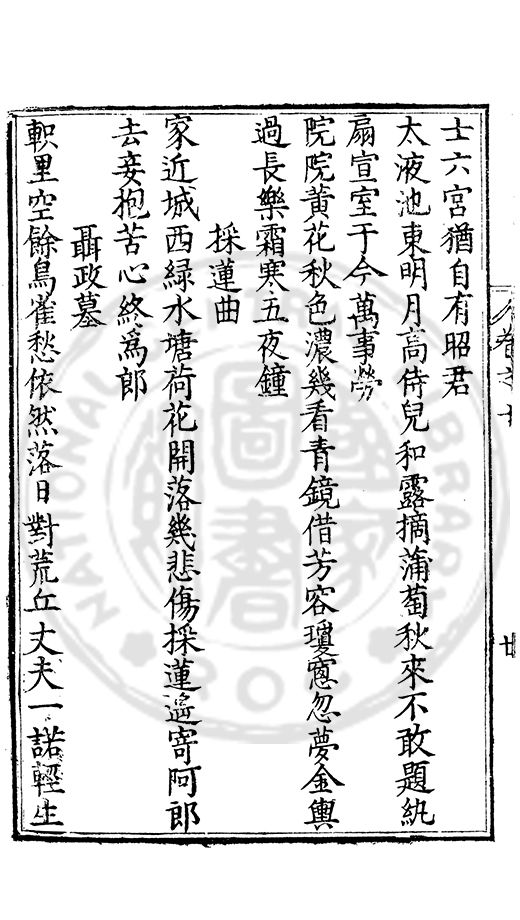 士六宮猶自有昭君
太液池東明月高侍兒和露摘蒲萄秋來不敢題紈
扇宣室于今萬事勞
院院黃花秋色濃幾看青鏡借芳容瓊窓忽夢金輿
過長樂霜寒五夜鐘
採蓮曲
家近城西綠水塘荷花開落幾悲傷採蓮遙寄阿郎
去妾抱苦心終爲郎
聶政墓
軹里空餘鳥雀愁依然落日對荒丘丈夫一諾輕生